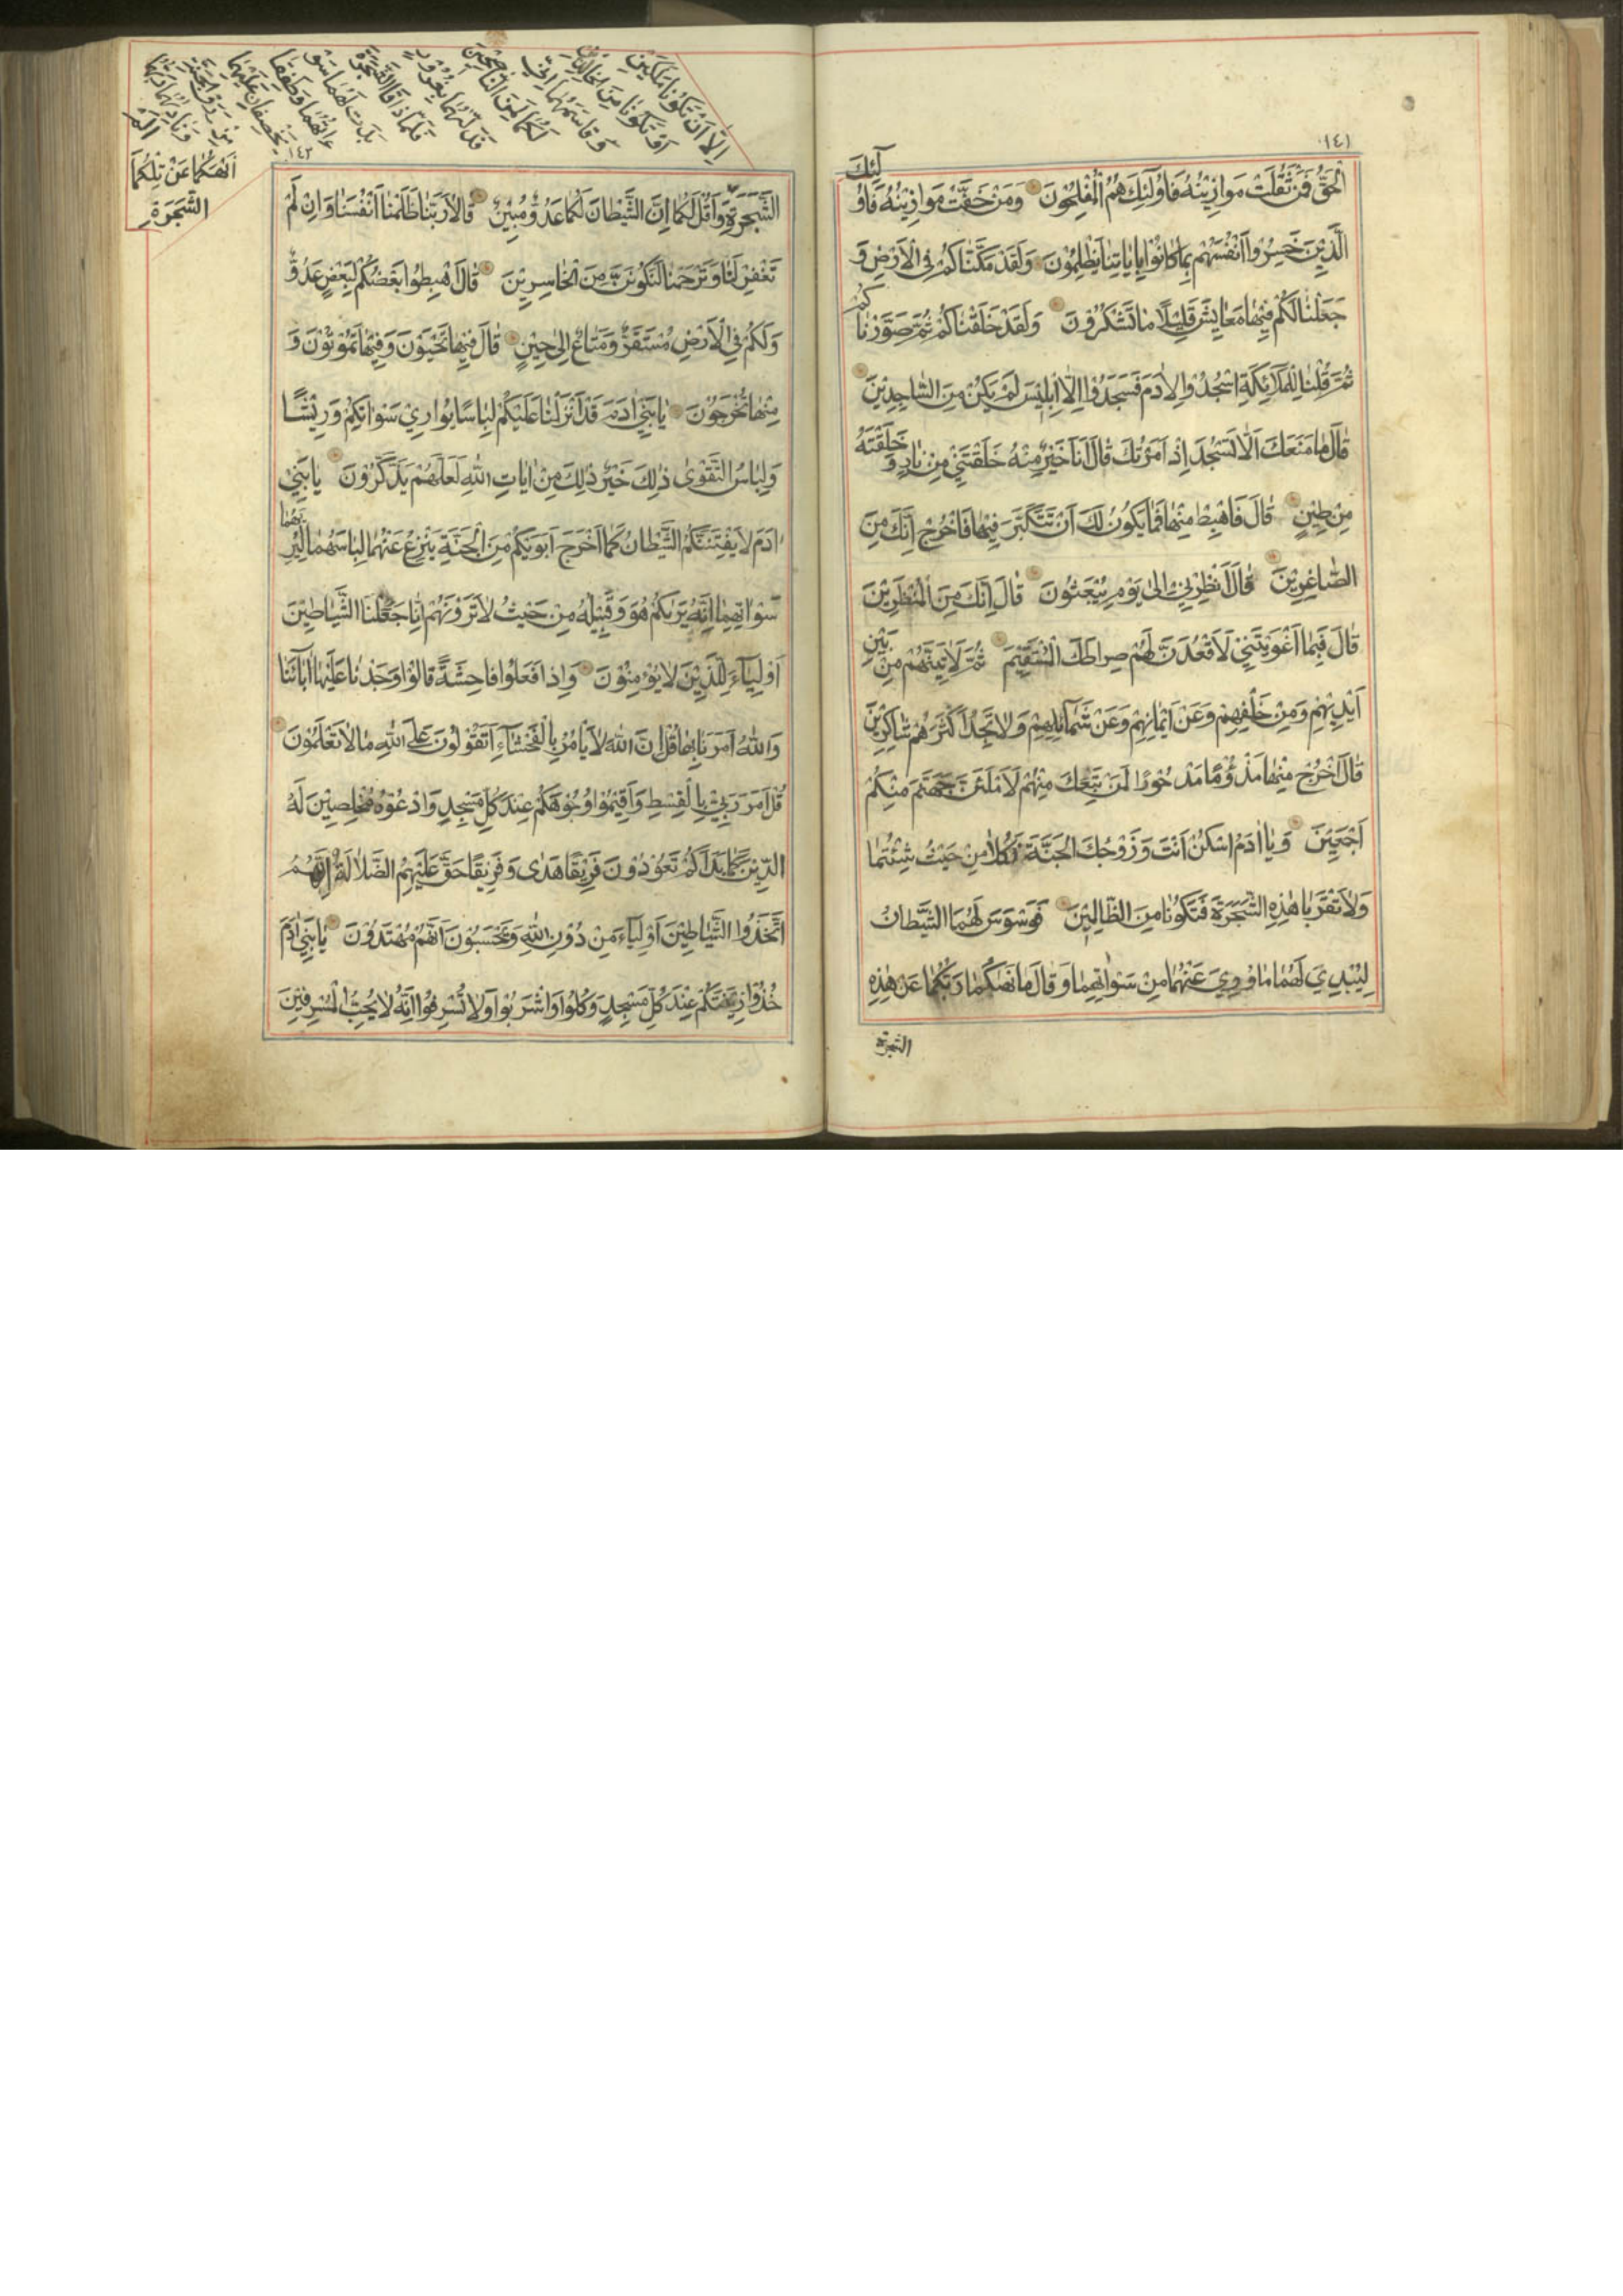 ١٤١
الْحَقُّ فَمَنْ ثَقُلَتْ مَوازِيْنُهُ فَاُولٰئِكَ هُمُ الْمُفْلِحُوْنَ وَمَنْ خَفَّتْ مَوازِيْنُهُ فَاُو
لٰٓئِكَ
الَّذِيْنَ خَسِرُوْا اَنْفُسَهُمْ بِمٰا كٰانُوْا بِاٰيٰاتِنٰا يَظْلِمُوْنَ وَلَقَدْ مَكَّنّٰاكُمْ فِي الْاَرْضِ وَ
جَعَلْنٰا لَكُمْ فِيْهٰا مَعٰايِشَ قَلِيْلًا مٰا تَشْكُرُوْنَ وَلَقَدْ خَلَقْنٰاكُمْ ثُمَّ صَوَّرْنٰا
كُمْ
ثُمَّ قُلْنٰا لِلْمَلٰٓائِكَةِ اسْجُدُوْا لِاٰدَمَ فَسَجَدُوْا اِلّٰا اِبْلِيْسَ لَمْ يَكُنْ مِنَ السّٰاجِدِيْنَ
قٰالَ مٰا مَنَعَكَ اَلّٰا تَسْجُدَ اِذْ اَمَرْتُكَ قٰالَ اَنَا خَيْرٌ مِنْهُ خَلَقْتَنِيْ مِنْ نٰارٍ وَ خَلَقْتَهُ
مِنْ طِيْنٍ قٰالَ فَاهْبِطْ مِنْهٰا فَمٰا يَكُوْنُ لَكَ اَنْ تَتَكَبَّرَ فِيْهٰا فَاخْرُجْ اِنَّكَ مِنَ
الصّٰاغِرِيْنَ قٰالَ اَنْظِرْنِيْ اِلٰى يَوْمِ يُبْعَثُوْنَ قٰالَ اِنَّكَ مِنَ الْمُنْظَرِيْنَ
قٰالَ فَبِمٰا اَغْوَيْتَنِيْ لَاَقْعُدَنَّ لَهُمْ صِرٰاطَكَ الْمُسْتَقِيْمَ ثُمَّ لَاٰتِيَنَّهُمْ مِنْ بَيْنِ
اَيْدِيْهِمْ وَمِنْ خَلْفِهِمْ وَعَنْ اَيْمٰانِهِمْ وَعَنْ شَمٰٓائِلِهِمْ وَلٰا تَجِدُ اَكْثَرَهُمْ شٰاكِرِيْنَ
قٰالَ اخْرُجْ مِنْهٰا مَذْؤُمًا مَدْحُوْرًا لَمَنْ تَبِعَكَ مِنْهُمْ لَاَمْلَئَنَّ جَهَنَّمَ مِنْكُمْ
اَجْمَعِيْنَ وَيٰا اٰدَمُ اسْكُنْ اَنْتَ وَزَوْجُكَ الْجَنَّةَ فَكُلٰا مِنْ حَيْثُ شِئْتُمٰا
وَلٰا تَقْرَبٰا هٰذِهِ الشَّجَرَةَ فَتَكُوْنٰا مِنَ الظّٰالِمِيْنَ فَوَسْوَسَ لَهُمَا الشَّيْطٰانُ
لِيُبْدِيَ لَهُمٰا مٰا وُوْرِيَ عَنْهُمٰا مِنْ سَوْاٰتِهِمٰا وَقٰالَ مٰا نَهٰيكُمٰا رَبُّكُمٰا عَنْ هٰذِهِ
الشجرة
اِلّٰا اَنْ تَكُوْنٰا مَلَكَيْنِ
اَوْ تَكُوْنٰا مِنَ الْخٰالِدِيْنَ
وَقٰاسَمَهُمٰا اِنِّيْ
لَكُمٰا لَمِنَ النّٰاصِحِيْنَ
فَدَلّٰيهُمٰا بِغُرُوْرٍ
فَلَمّٰا ذٰاقَا الشَّجَرَةَ
بَدَتْ لَهُمٰا سَوْ
اٰتُهُمٰا وَطَفِقٰا
يَخْصِفٰانِ عَلَيْهِمٰا
مِنْ وَرَقِ الْجَنَّةِ
وَنٰادٰيهُمٰا رَبُّهُمٰا
اَلَمْ
اَنْهَكُمٰا عَنْ تِلْكُمَا
الشَّجَرَةِ
١٤٢
الشَّجَرَةِ وَاَقُلْ لَكُمٰا اِنَّ الشَّيْطٰانَ لَكُمٰا عَدُوٌّ مُبِيْنٌ قٰالٰا رَبَّنٰا ظَلَمْنٰا اَنْفُسَنٰا وَاِنْ لَمْ
تَغْفِرْ لَنٰا وَتَرْحَمْنٰا لَنَكُوْنَنَّ مِنَ الْخٰاسِرِيْنَ قٰالَ اهْبِطُوْا بَعْضُكُمْ لِبَعْضٍ عَدُوٌّ
وَلَكُمْ فِي الْاَرْضِ مُسْتَقَرٌّ وَمَتٰاعٌ اِلٰى حِيْنٍ قٰالَ فِيْهٰا تَحْيَوْنَ وَفِيْهٰا تَمُوْتُوْنَ وَ
مِنْهٰا تُخْرَجُوْنَ يٰا بَنِيْ اٰدَمَ قَدْ اَنْزَلْنٰا عَلَيْكُمْ لِبٰاسًا يُوٰارِيْ سَوْاٰتِكُمْ وَرِيْشًا
وَلِبٰاسُ التَّقْوٰى ذٰلِكَ خَيْرٌ ذٰلِكَ مِنْ اٰيٰاتِ اللّٰهِ لَعَلَّهُمْ يَذَّكَّرُوْنَ يٰا بَنِيْ
اٰدَمَ لٰا يَفْتِنَنَّكُمُ الشَّيْطٰانُ كَمٰا اَخْرَجَ اَبَوَيْكُمْ مِنَ الْجَنَّةِ يَنْزِعُ عَنْهُمٰا لِبٰاسَهُمٰا لِيُرِ
يَهُمٰا
سَوْاٰتِهِمٰا اِنَّهُ يَرٰيكُمْ هُوَ وَقَبِيْلُهُ مِنْ حَيْثُ لٰا تَرَوْنَهُمْ اِنّٰا جَعَلْنَا الشَّيٰاطِيْنَ
اَوْلِيٰٓاءَ لِلَّذِيْنَ لٰا يُؤْمِنُوْنَ وَاِذٰا فَعَلُوْا فٰاحِشَةً قٰالُوْا وَجَدْنٰا عَلَيْهٰا اٰبٰآئَنٰا
وَاللّٰهُ اَمَرَنٰا بِهٰا قُلْ اِنَّ اللّٰهَ لٰا يَأْمُرُ بِالْفَحْشٰٓاءِ اَتَقُوْلُوْنَ عَلَى اللّٰهِ مٰا لٰا تَعْلَمُوْنَ
قُلْ اَمَرَ رَبِّيْ بِالْقِسْطِ وَاَقِيْمُوْا وُجُوْهَكُمْ عِنْدَ كُلِّ مَسْجِدٍ وَادْعُوْهُ مُخْلِصِيْنَ لَهُ
الدِّيْنَ كَمٰا بَدَاَكُمْ تَعُوْدُوْنَ فَرِيْقًا هَدٰى وَفَرِيْقًا حَقَّ عَلَيْهِمُ الضَّلٰالَةُ اِنَّهُمُ
اتَّخَذُوا الشَّيٰاطِيْنَ اَوْلِيٰٓاءَ مِنْ دُوْنِ اللّٰهِ وَيَحْسَبُوْنَ اَنَّهُمْ مُهْتَدُوْنَ يٰا بَنِيْ اٰدَمَ
خُذُوْا زِيْنَتَكُمْ عِنْدَ كُلِّ مَسْجِدٍ وَكُلُوْا وَاشْرَبُوْا وَلٰا تُسْرِفُوْا اِنَّهُ لٰا يُحِبُّ الْمُسْرِفِيْنَ